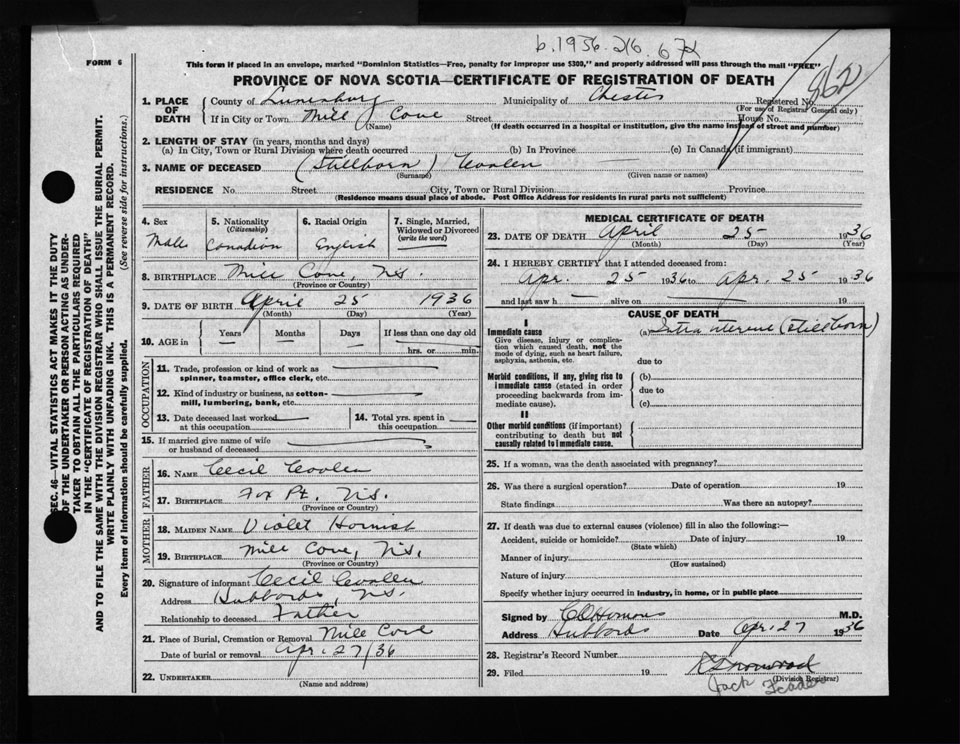 b.1936.216.672
FORM 6
This form if placed in an envelope, marked "Dominion Statistics—Free, penalty for improper use $300," and properly addressed will pass through the mail "FREE"
PROVINCE OF NOVA SCOTIA—CERTIFICATE OF REGISTRATION OF DEATH
862
1. PLACE OF DEATH
County of Lunenburg Municipality of Chester Registered No.
(For use of Registrar General only)
If in City or Town Mill Cove Street House No.
(Name) (If death occurred in a hospital or institution, give the name instead of street and number)
2. LENGTH OF STAY (in years, months and days)
(a) In City, Town or Rural Division where death occurred (b) In Province (c) In Canada (if immigrant)
3. NAME OF DECEASED (Stillborn)
(Surname) (Given name or names)
RESIDENCE No. Street City, Town or Rural Division Province
(Residence means usual place of abode. Post Office Address for residents in rural parts not sufficient)
4. Sex
Male
5. Nationality
(Citizenship)
Canadian
6. Racial Origin
English
7. Single, Married, Widowed or Divorced
(write the word)
8. BIRTHPLACE Mill Cove, N.S.
(Province or Country)
9. DATE OF BIRTH April 25 1936
(Month) (Day) (Year)
10. AGE in
Years Months Days If less than one day old
hrs. or min.
OCCUPATION
11. Trade, profession or kind of work as spinner, teamster, office clerk, etc.
12. Kind of industry or business, as cotton-mill, lumbering, bank, etc.
13. Date deceased last worked at this occupation
14. Total yrs. spent in this occupation
15. If married give name of wife or husband of deceased
FATHER
16. NAME Cecil
17. BIRTHPLACE Fox Pt. N.S.
(Province or Country)
MOTHER
18. MAIDEN NAME Violet Hornish
19. BIRTHPLACE Mill Cove, N.S.
(Province or Country)
20. Signature of informant Cecil
Address Hubbards, N.S.
Relationship to deceased Father
21. Place of Burial, Cremation or Removal Mill Cove
Date of burial or removal Apr. 27/36
22. UNDERTAKER
(Name and address)
MEDICAL CERTIFICATE OF DEATH
23. DATE OF DEATH April 25 1936
(Month) (Day) (Year)
24. I HEREBY CERTIFY that I attended deceased from:
Apr. 25 1936 to Apr. 25 1936
and last saw h alive on 19
CAUSE OF DEATH
I
Immediate cause
Give disease, injury or complication which caused death, not the mode of dying, such as heart failure, asphyxia, asthenia, etc.
(a) Intra uterine (stillborn)
due to
Morbid conditions, if any, giving rise to immediate cause (stated in order proceeding backwards from immediate cause).
(b)
due to
(c)
II
Other morbid conditions (if important) contributing to death but not causally related to immediate cause.
25. If a woman, was the death associated with pregnancy?
26. Was there a surgical operation? Date of operation 19
State findings Was there an autopsy?
27. If death was due to external causes (violence) fill in also the following:—
Accident, suicide or homicide? Date of injury 19
(State which)
Manner of injury
(How sustained)
Nature of injury
Specify whether injury occurred in industry, in home, or in public place
Signed by M.D.
Address Hubbards Date Apr. 27 1936
28. Registrar's Record Number
29. Filed 19
(Division Registrar)
Jack
SEC. 46—VITAL STATISTICS ACT MAKES IT THE DUTY
OF THE UNDERTAKER OR PERSON ACTING AS UNDER-
TAKER TO OBTAIN ALL THE PARTICULARS REQUIRED
IN THE "CERTIFICATE OF REGISTRATION OF DEATH"
AND TO FILE THE SAME WITH THE DIVISION REGISTRAR WHO SHALL ISSUE THE BURIAL PERMIT.
WRITE PLAINLY WITH UNFADING INK. THIS IS A PERMANENT RECORD.
Every item of information should be carefully supplied. (See reverse side for instructions.)